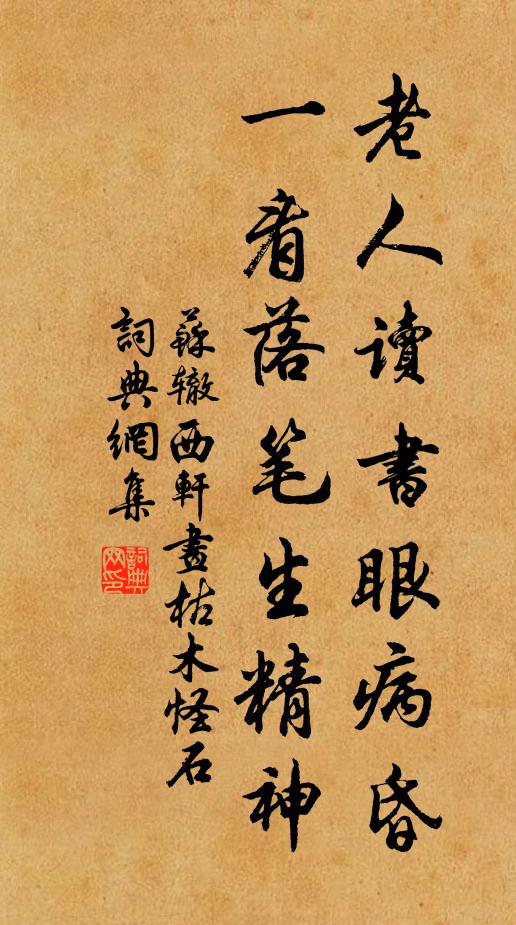 老人讀書眼病昏
一看落笔生精神
蘇辙西軒畫枯木怪石
詞典網集
詞典網印